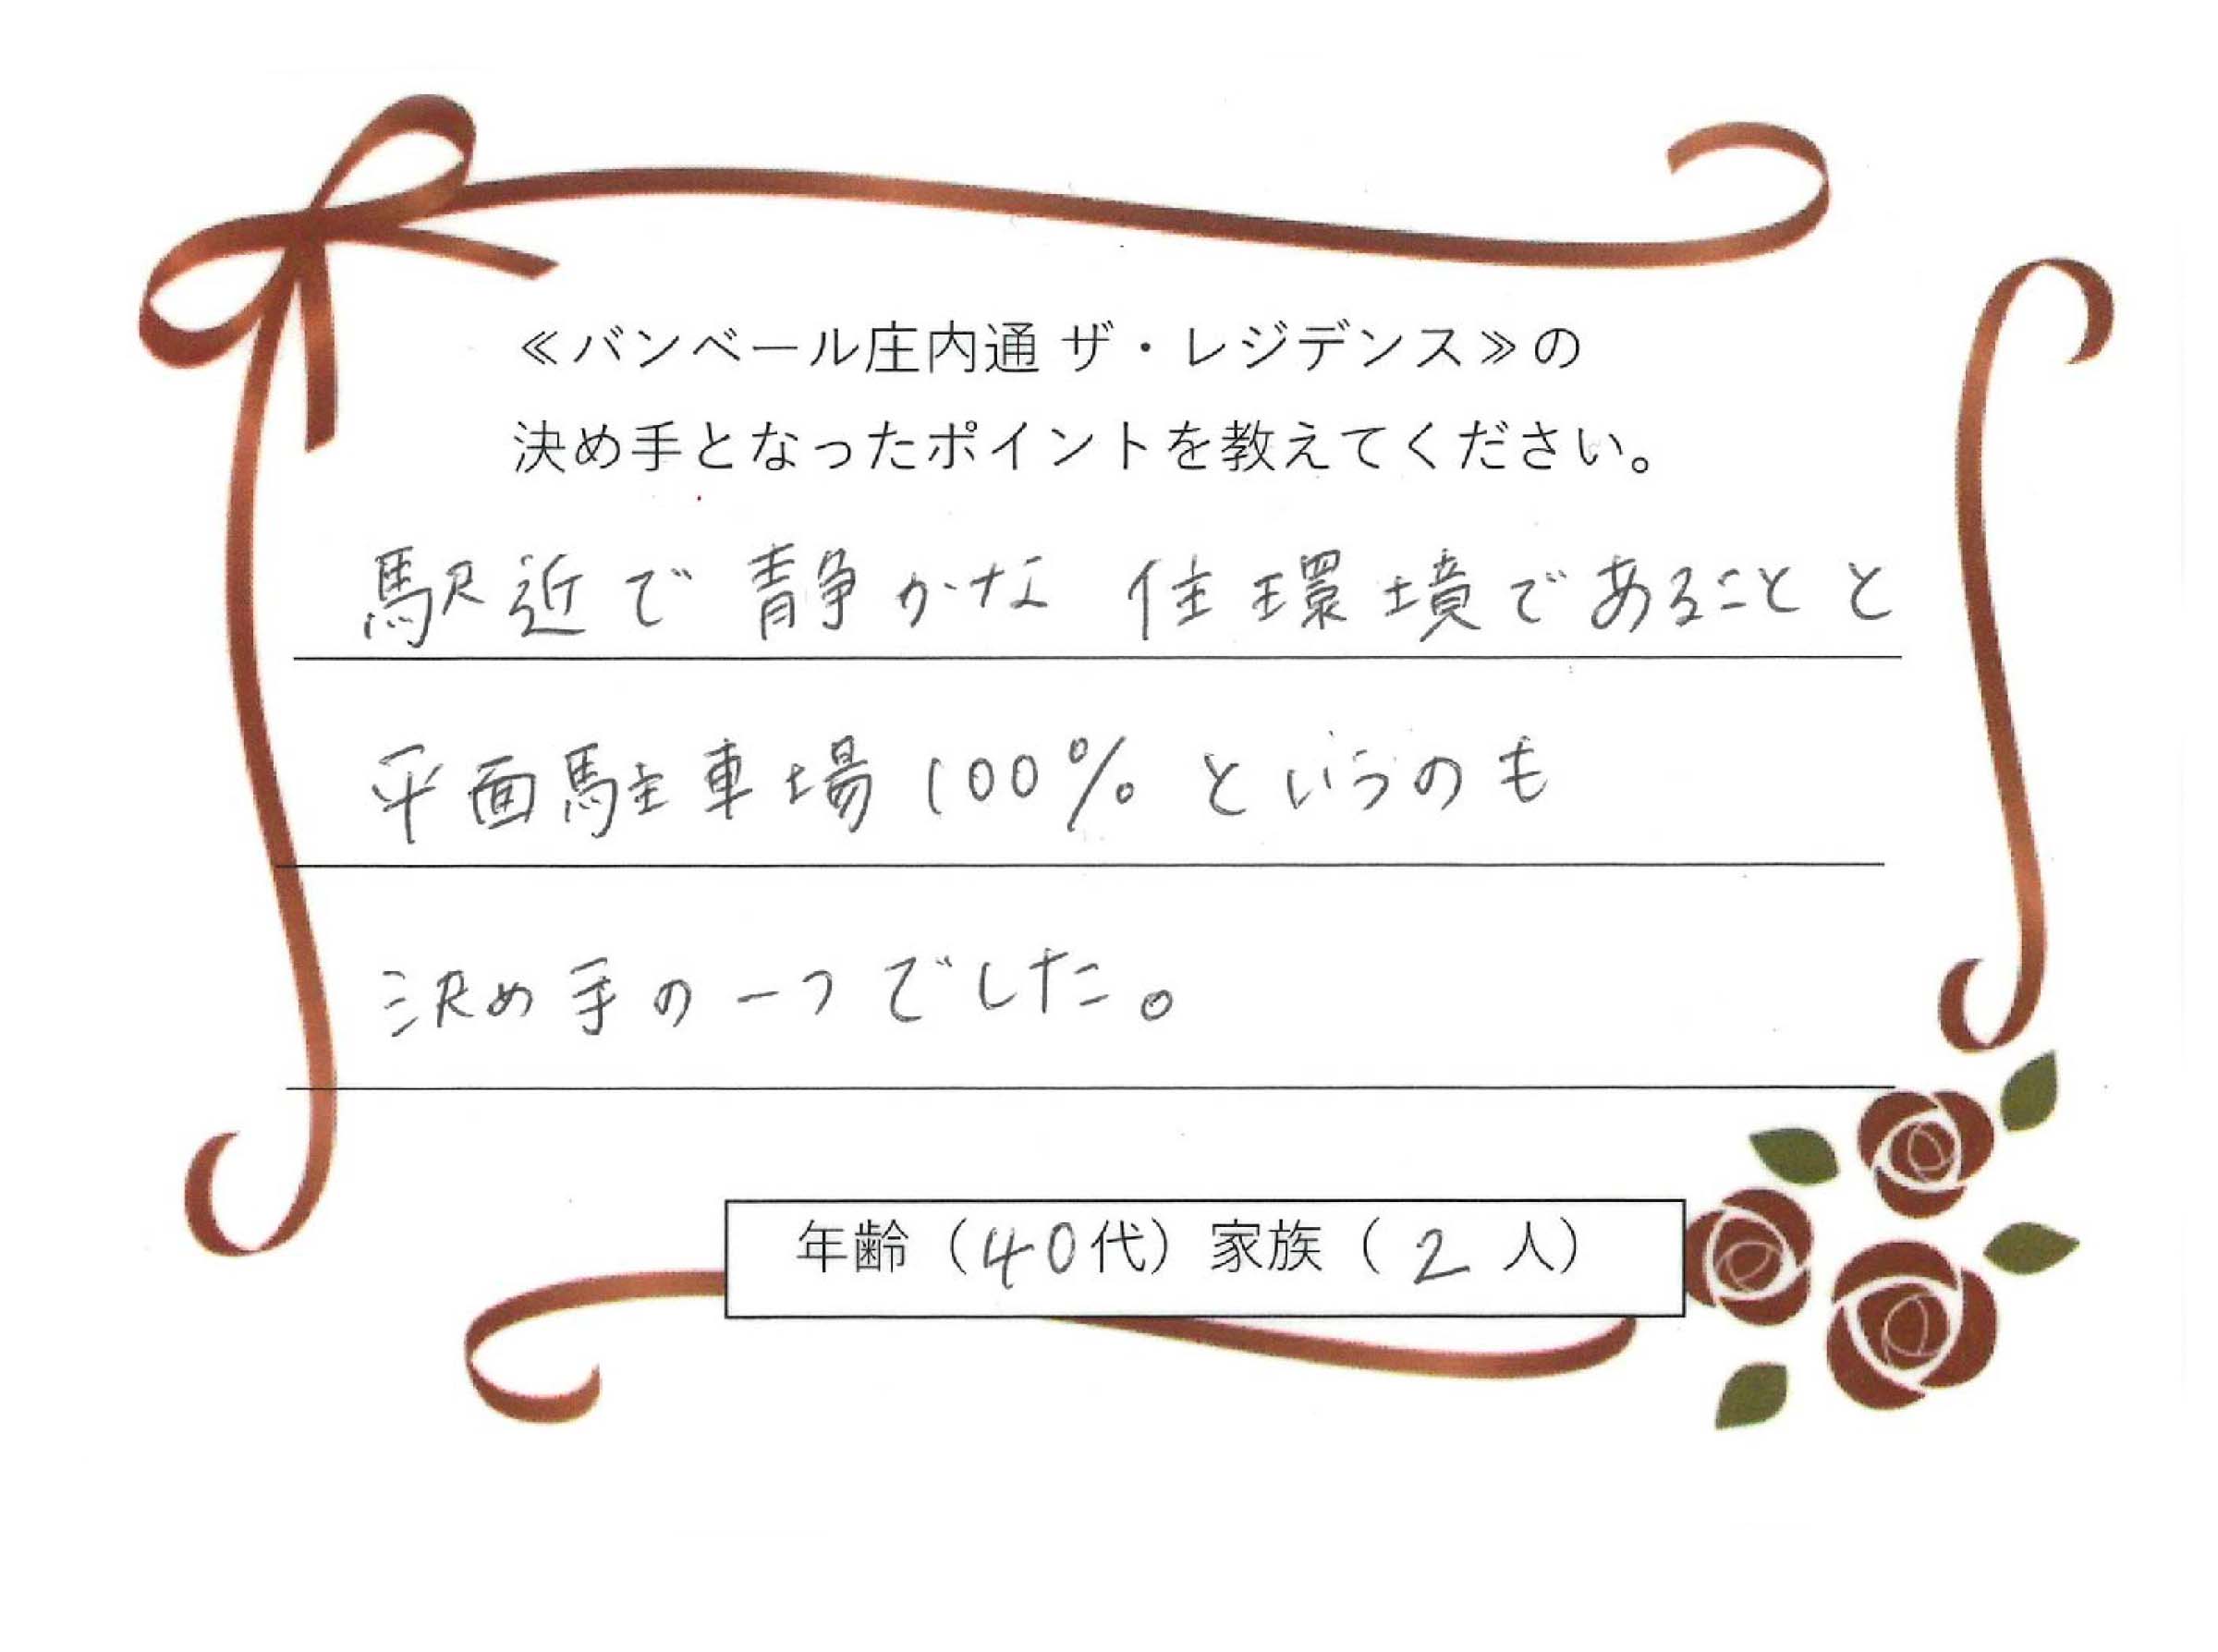 ≪バンベール庄内通 ザ・レジデンス≫の
決め手となったポイントを教えてください。
駅近で静かな住環境であることと
平面駐車場100%というのも
決め手の一つでした。
年齢（40代）家族（2人）